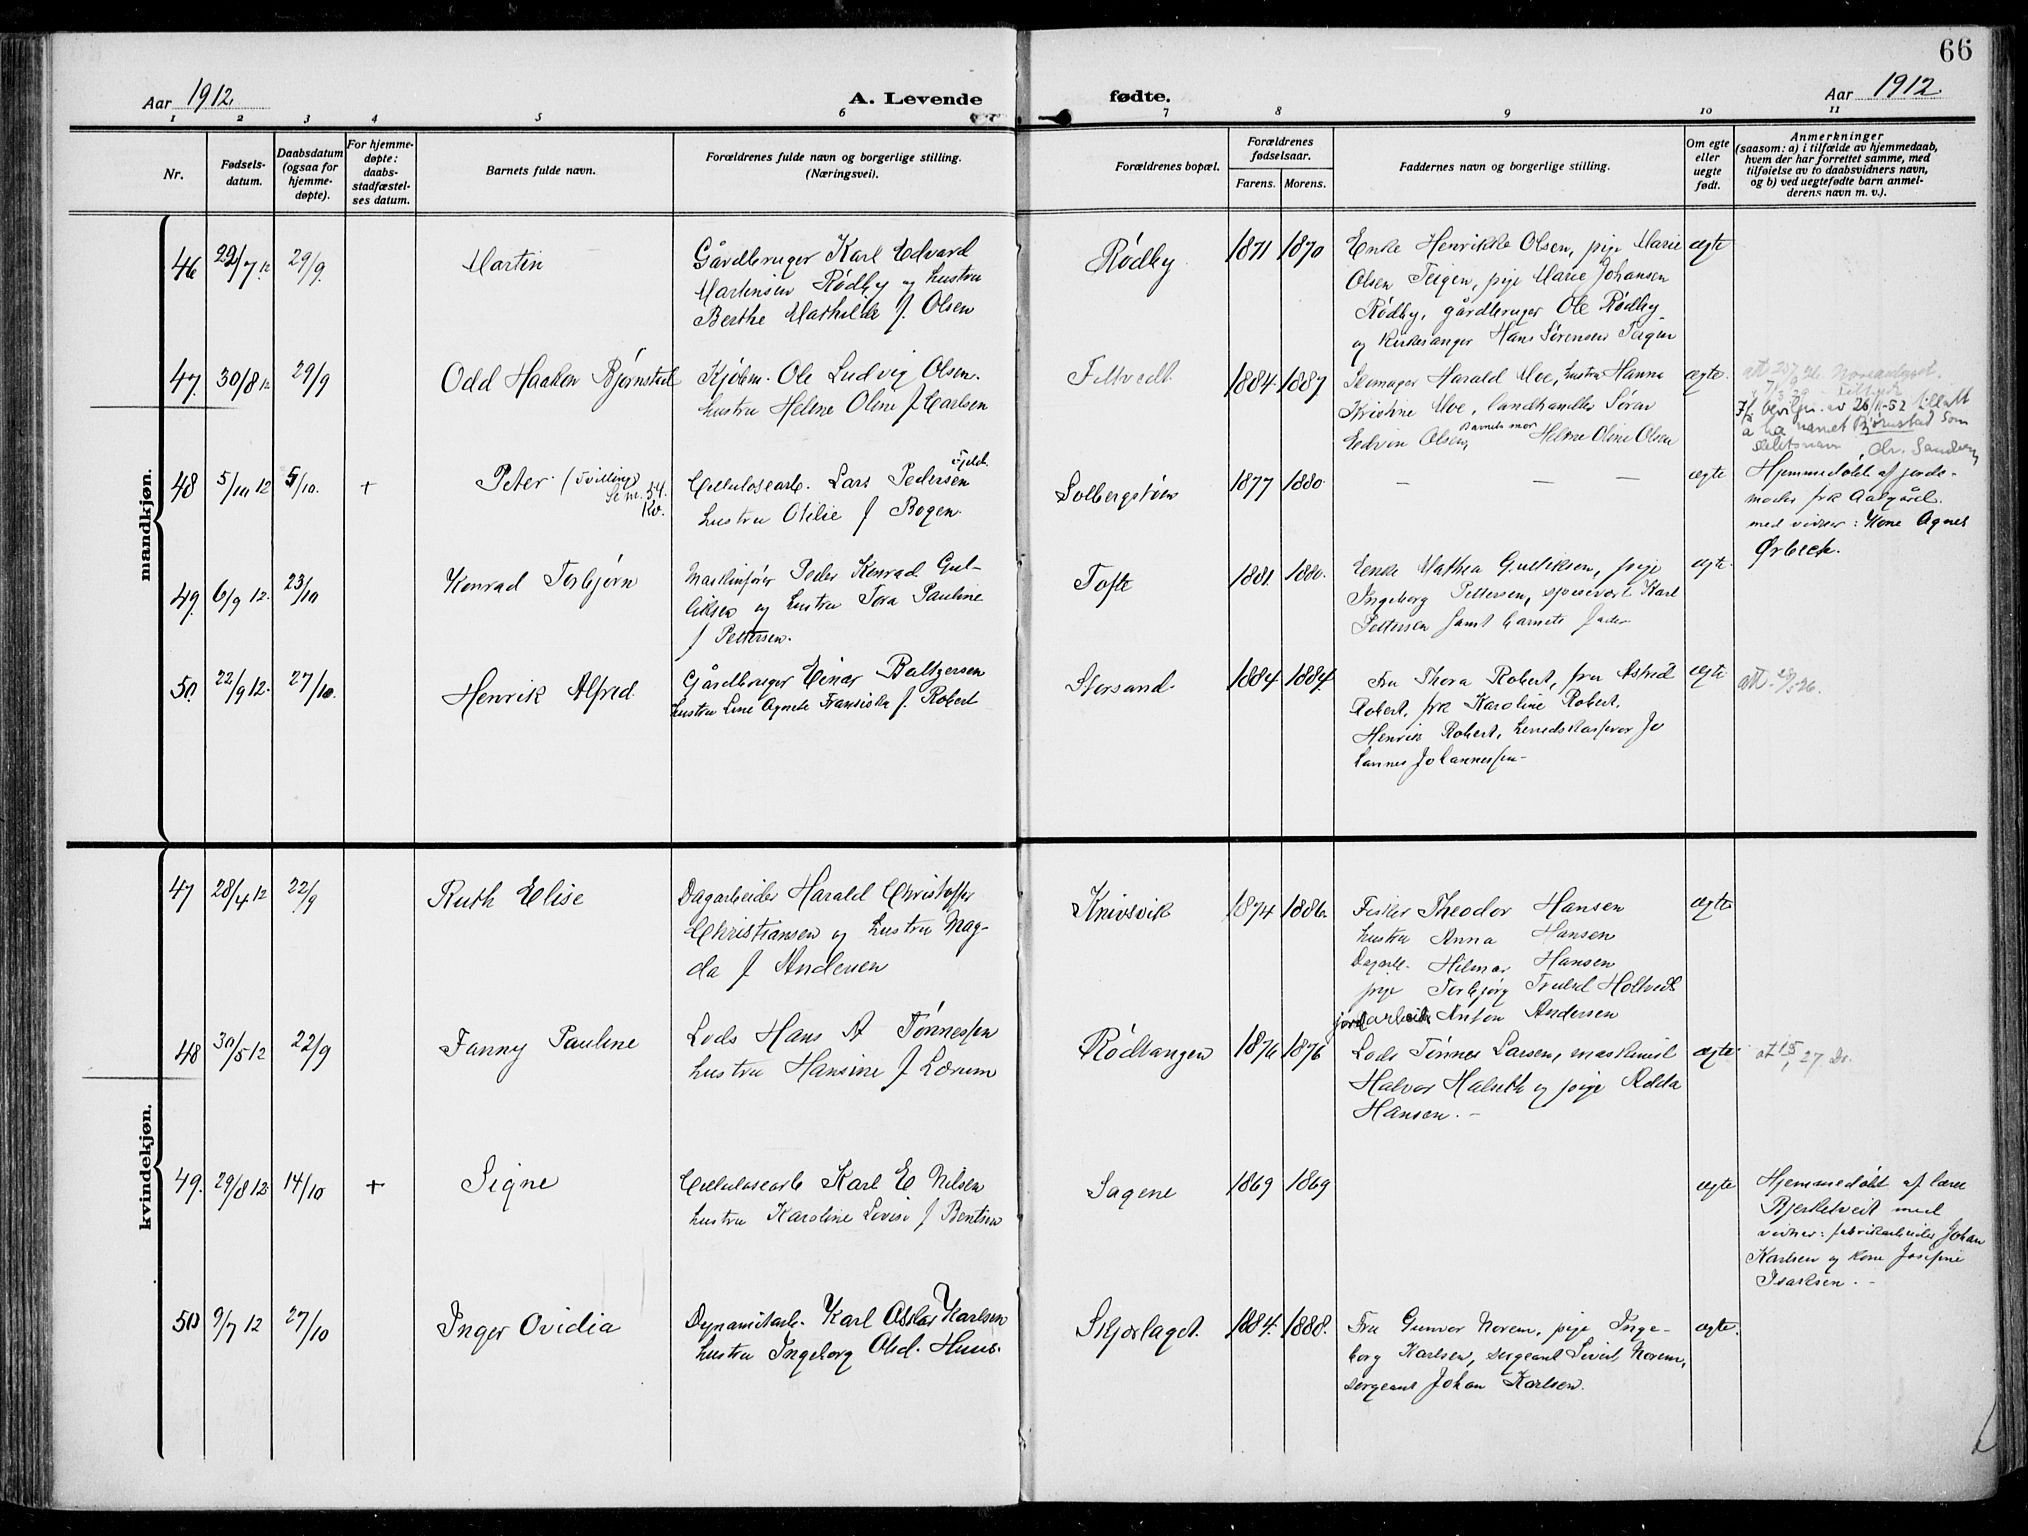 66
Aar 1912.
A. Levende
fødte.
Aar 1912.
1 2 3 4 5 6 7 8 9 10 11
Nr.
Fødsels-
datum.
Daabsdatum
(ogsaa for
hjemme-
døpte).
For hjemme-
døpte:
daabs-
stadfæstel-
ses datum.
Barnets fulde navn.
Forældrenes fulde navn og borgerlige stilling.
(Næringsvei).
Forældrenes bopæl.
Forældrenes
fødselsaar.
Farens. Morens.
Faddernes navn og borgerlige stilling.
Om egte
eller
uegte
født.
Anmerkninger
(saasom: a) i tilfælde av hjemmedaab,
hvem der har forrettet samme, med
tilføielse av to daabsvidners navn,
og b) ved uegtefødte barn anmel-
derens navn m. v.).
mandkjøn.
46 22/7 12 29/9 Martin
Gårdbruger Karl Edvard
Martinsen Rødby og hustru
Berthe Mathilde f. Olsen
Rødby 1871 1870
Enke Henrikke Olsen, pige Marie
Olsen Teigen, pige Marie Johansen
Rødby, gårdbruger Ole Rødby
og kirkesanger Hans Sørensen Teigen
ægte
47. 30/8 12 29/9 Odd Haakon Bjørnstad
Kjøbm. Ole Ludvig Olsen.
hustru Helene Oline f. Carlsen
Filtvedt 1884. 1887
Harald Moe, hustru Hanna
Kristine Moe, landhandler Søren
Edvin Olsen, Barnets mor Helene Oline Olsen
ægte.
bevilgn. av 26/11-52 tillatt
å ha navnet Bjørnstad som
slektsnavn
48 5/10 12 5/10. + Peter (Tvilling)
Se nr. 54.
Kv.
Cellulosearb. Lars Pedersen
hustru Otilie f Bogen.
1877 1880
— — —
ægte
Hjemmedøbt af jords-
moder frk Aalgård.
med vidner: Kone Agnes
Ørbeck.
49. 6/9 12. 23/10 Konrad Torbjørn
Maskinfører Peder Konrad Gul-
liksen og hustru Tora Pauline
f Pettersen.
Tofte 1881. 1880.
Enke Mathea Gulliksen, pige
Ingeborg Pettersen, Karl
Pettersen samt barnets fader
ægte
50. 22/9 12. 27/10. Henrik Alfred.
Gårdbruger Einar Baltzersen
hustru Line Agnete Fransiska f. Robert
Storsand. 1884 1884.
Fru Thora Robert, fru Astrid
Robert, frk Karoline Robert,
Henrik Robert, herredskasserer Jo
hannes Johannessen
ægte
kvindekjøn.
47 28/4 12 22/9 Ruth Elise
Dagarbeider Harald Christoffer
Christiansen og hustru Mag-
da f Andersen
Knivsvik 1874 1886.
Fisker Theodor Hansen
hustru Anna Hansen
Dagarb. Hilmar Hansen
pige Torbjørg Holtvedt
jordarbeider Anton Andersen
ægte
48 30/5 12 22/9 Fanny Pauline
Lods Hans A Tønnessen
hustru Hansine f Lærum
Rødtangen 1876 1876
Lods Tønnes Larsen, maskinist
Halvor Halseth og pige Adda
Hansen. –
ægte
49. 29/8 12 14/10 + Signe
Cellulosearb Karl E Nilsen
hustru Karoline Lovise f Bentsen
Sagene 1869 1869
ægte
Hjemmedøbt af lærer
Bjerketveit med
vidner: fabrikarbeider Johan
Karlsen og kone Josefine
Isaksen. –
50 9/7 12 27/10 Inger Ovidia
Dynamitarb. Karl Oskar Karlsen
hustru Ingeborg Huus.
1884. 1888.
Fru Gunvor Norem, pige Inge-
borg Karlsen, sergeant Sivert Norem,
sergeant Johan Karlsen.
ægte.